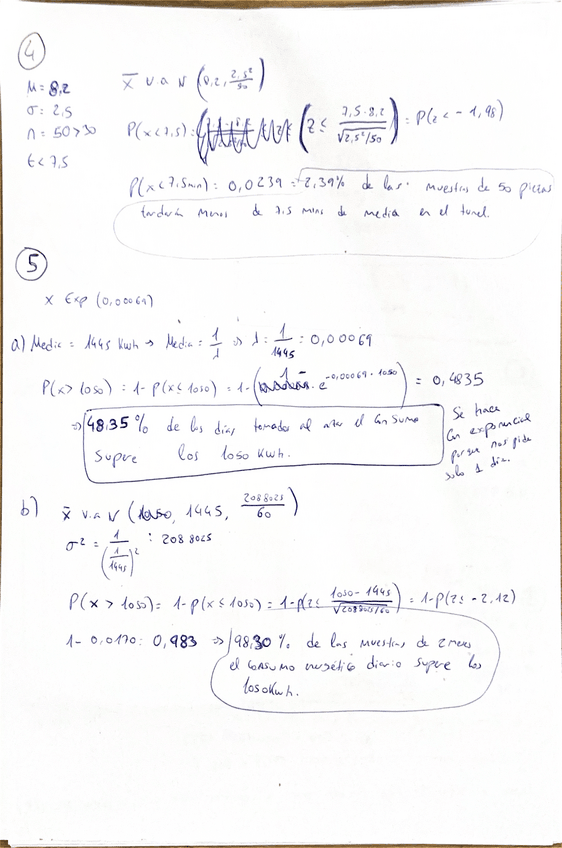 4
M = 8,2
σ = 2,5
n = 50 > 30
t < 7,5
X̄ v.a N (8,2, 2,5²/50)
P(x < 7,5) : (Z ≤ (7,5 - 8,2)/√2,5²/50) = P(z < - 1,98)
P(x < 7,5min) : 0,0239 = 2,39% de las muestras de 50 piezas
tardarán menos de 7.5 mins de media en el tunel.
5
X Exp (0,00069)
a) Media = 1445 Kwh → Media = 1/λ ⇒ λ = 1/1445 : 0,00069
P(x > 1050) = 1 - p(x ≤ 1050) = 1 - (1 - e^-0,00069 · 1050) = 0,4835
⇒ 48,35 % de los dias tomados al azar el Consumo
Supere los 1050 Kwh.
Se hace
Con exponencial
porque nos pide
solo 1 dia.
b) x̄ v.a N (1445, 2088025/60)
σ² = 1/(1/1445)² : 2088025
P(x > 1050) = 1 - p(x ≤ 1050) = 1 - p(z ≤ (1050 - 1445)/√2088025/60) = 1 - P(z ≤ - 2,12)
1 - 0,0170 : 0,983 ⇒ 98,30 % de las muestras de 2 meses
el consumo energético diario supere los
1050Kwh.